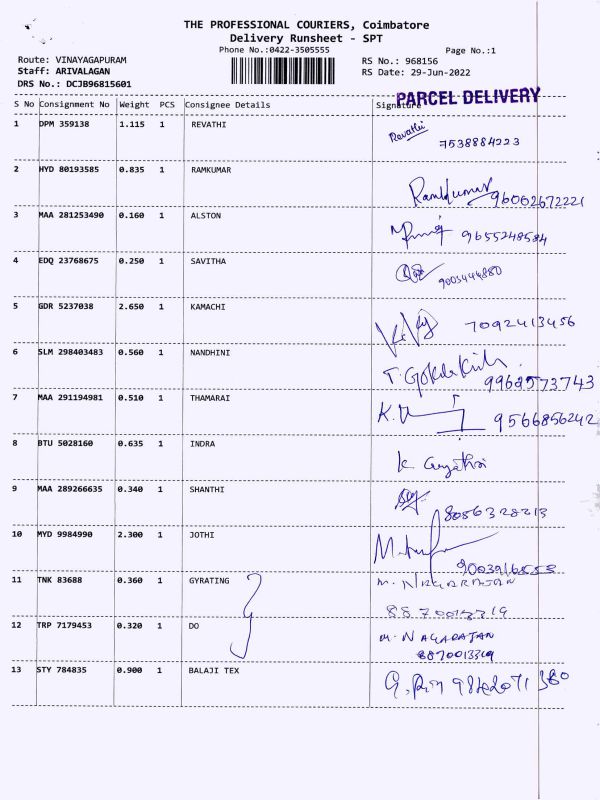 THE PROFESSIONAL COURIERS, Coimbatore
Delivery Runsheet - SPT
Phone No.:0422-3505555
Page No.:1
Route: VINAYAGAPURAM
RS No.: 968156
Staff: ARIVALAGAN
RS Date: 29-Jun-2022
DRS No.: DCJB96815601
PARCEL DELIVERY
S No Consignment No Weight PCS Consignee Details Signature
1 DPM 359138 1.115 1 REVATHI Revathi
7538884223
2 HYD 80193585 0.835 1 RAMKUMAR
Ramkumar 96002672221
3 MAA 281253490 0.160 1 ALSTON
9655248584
4 EDQ 23768675 0.250 1 SAVITHA
9003444880
5 GDR 5237038 2.650 1 KAMACHI
7092413456
6 SLM 298403483 0.560 1 NANDHINI
7 MAA 291194981 0.510 1 THAMARAI
9566856242
8 BTU 5028160 0.635 1 INDRA
K Gayathri
9 MAA 289266635 0.340 1 SHANTHI
8056328213
10 MYD 9984990 2.300 1 JOTHI
11 TNK 83688 0.360 1 GYRATING M. NAGARAJAN
12 TRP 7179453 0.320 1 DO M. NAGARAJAN
13 STY 784835 0.900 1 BALAJI TEX